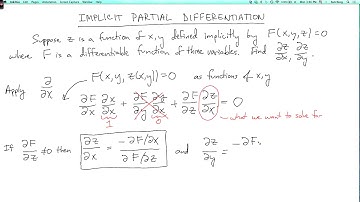 IMPLICIT PARTIAL DIFFERENTIATION
Suppose z is a function of x,y defined implicitly by F(x,y,z)=0
where F is a differentiable function of three variables. Find ∂z/∂x, ∂z/∂y
Apply ∂/∂x
F(x,y,z(x,y))=0 as functions of x,y
∂F/∂x ∂x/∂x + ∂F/∂y ∂y/∂x + ∂F/∂z ∂z/∂x = 0
1 0 what we want to solve for
If ∂F/∂z ≠0 then ∂z/∂x = -∂F/∂x / ∂F/∂z and ∂z/∂y = -∂F